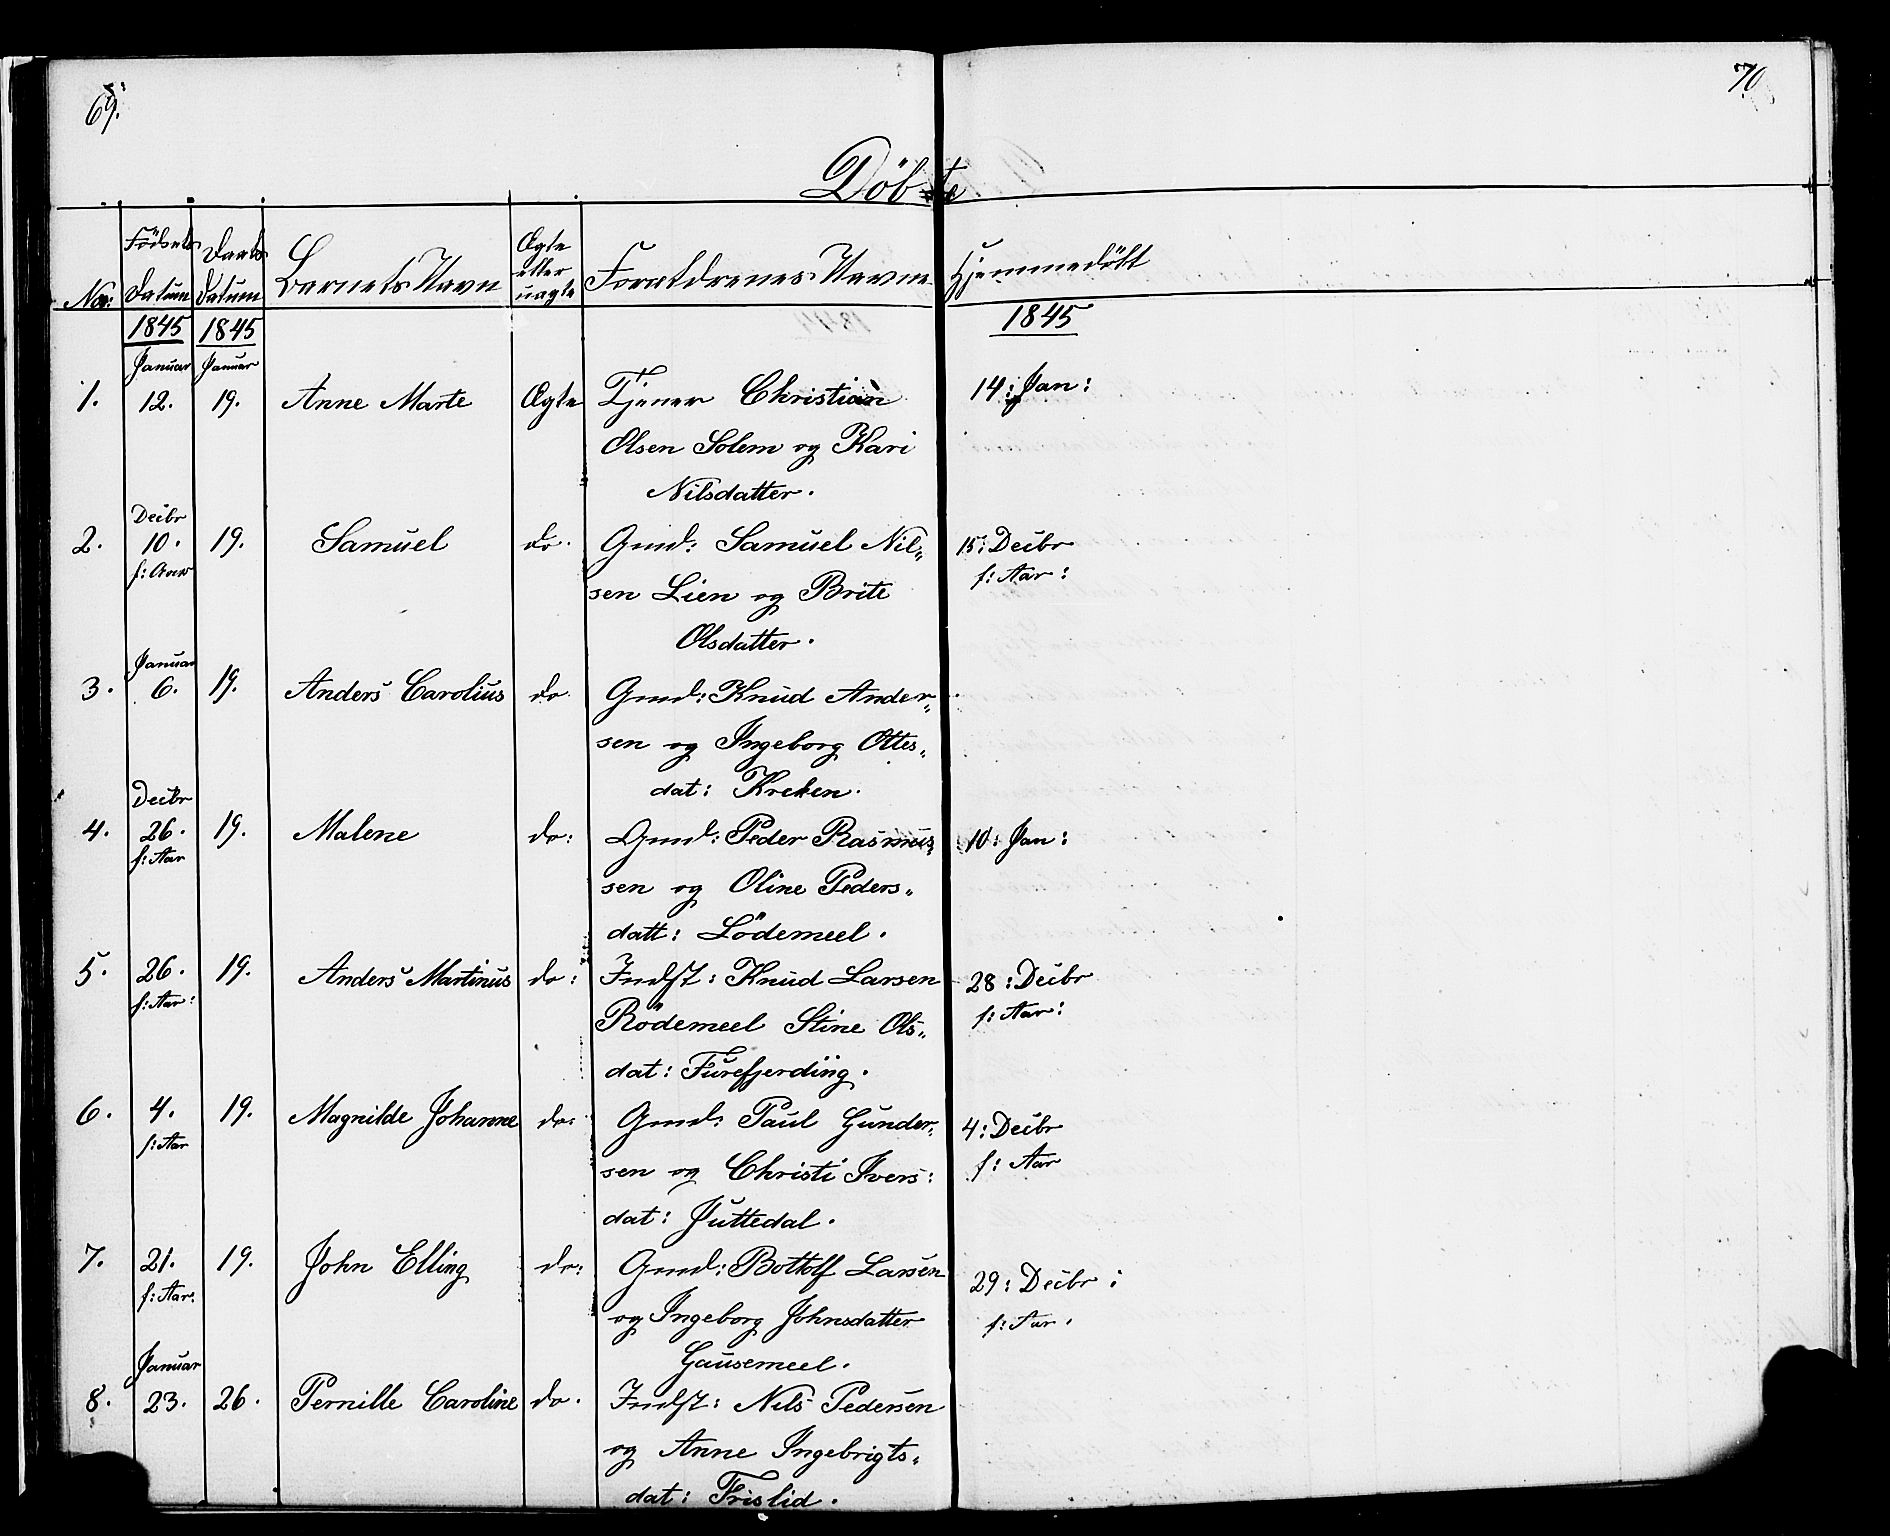 69.
70
Döbte
No:
Födsels Datum
Daabs Datum
Barnets Navn
Ægte eller uægte
Forældrenes Navne
Hjemmedöbt
1845
1845
1845
Januar
Januar
1. 12. 19. Anne Marte Ægte Tjener Christian 14: Jan:
Olsen Solem og Kari
Nilsdatter.
Decbr
2. 10. 19. Samuel do. Gmd: Samuel Nil„ 15: Decbr
f: Aar f: Aar:
sen Lien og Brite
Olsdatter.
Januar
3. 6. 19. Anders Carolius do. Gmd: Knud Ander„
sen og Ingeborg Ottes„
dat: Kreken.
Decbr
4. 26. 19. Malene do: Gmd: Peder Rasmus„ 10: Jan:
f: Aar
sen og Oline Peders„
datt: Lödemeel.
5. 26. 19. Anders Martinus do: Indst: Knud Larsen 28: Decbr
f: Aar: f: Aar:
Rödemeel Stine Ols„
dat: Furefjerding.
6. 4. 19. Magnilde Johanne do: Gmd: Paul Gunder„ 4: Decbr
f: Aar f: Aar
sen og Christi Ivers:
dat: Juttedal.
7. 21. 19. John Elling do: Gmd: Bottolf Larsen 29: Decbr:
f: Aar. f: Aar.
og Ingeborg Johnsdatter
Gausemeel.
Januar
8. 23. 26. Pernille Caroline do. Indst: Nils Pedersen
og Anne Ingebrigts„
dat: Frislid.